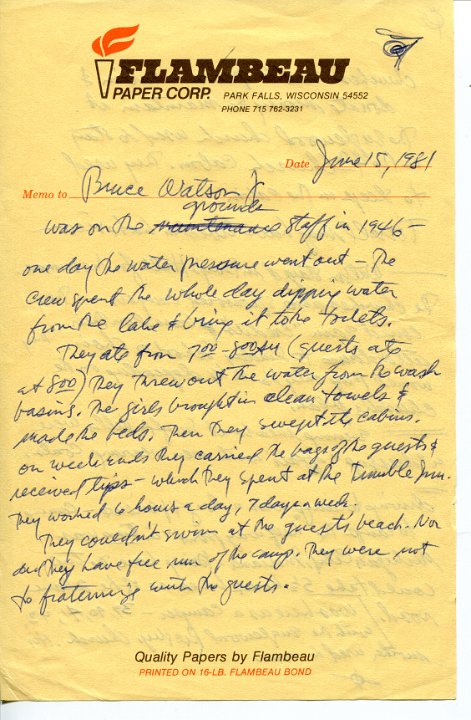 FLAMBEAU
PAPER CORP. PARK FALLS, WISCONSIN 54552
PHONE 715 762-3231
Date June 15, 1981
Memo to Bruce Watson Jr
grounds
was on the maintenance staff in 1946 -
one day the water pressure went out - The
crew spent the whole day dipping water
from the lake & bring it to the toilets.
They ate from 7:00 - 8:00 AM (guests ate
at 8:00) They threw out the water from the wash
basins. The girls brought in clean towels &
made the beds. Then they swept the cabins.
on weekends they carried the bags of the guests &
received tips - which they spent at the Inn.
They worked 6 hours a day, 7 days a week.
They couldn't swim at the guests beach. Nor
did they have free run of the camp. They were not
to fraternize with the guests.
Quality Papers by Flambeau
PRINTED ON 16-LB. FLAMBEAU BOND